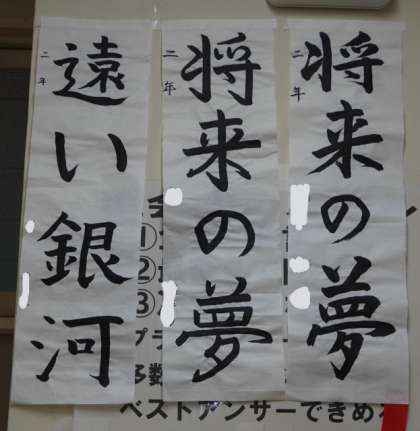 将来の夢
二年
将来の夢
二年
遠い銀河
二年
①
②
③
プラ
多数
ベストアンサーできめ